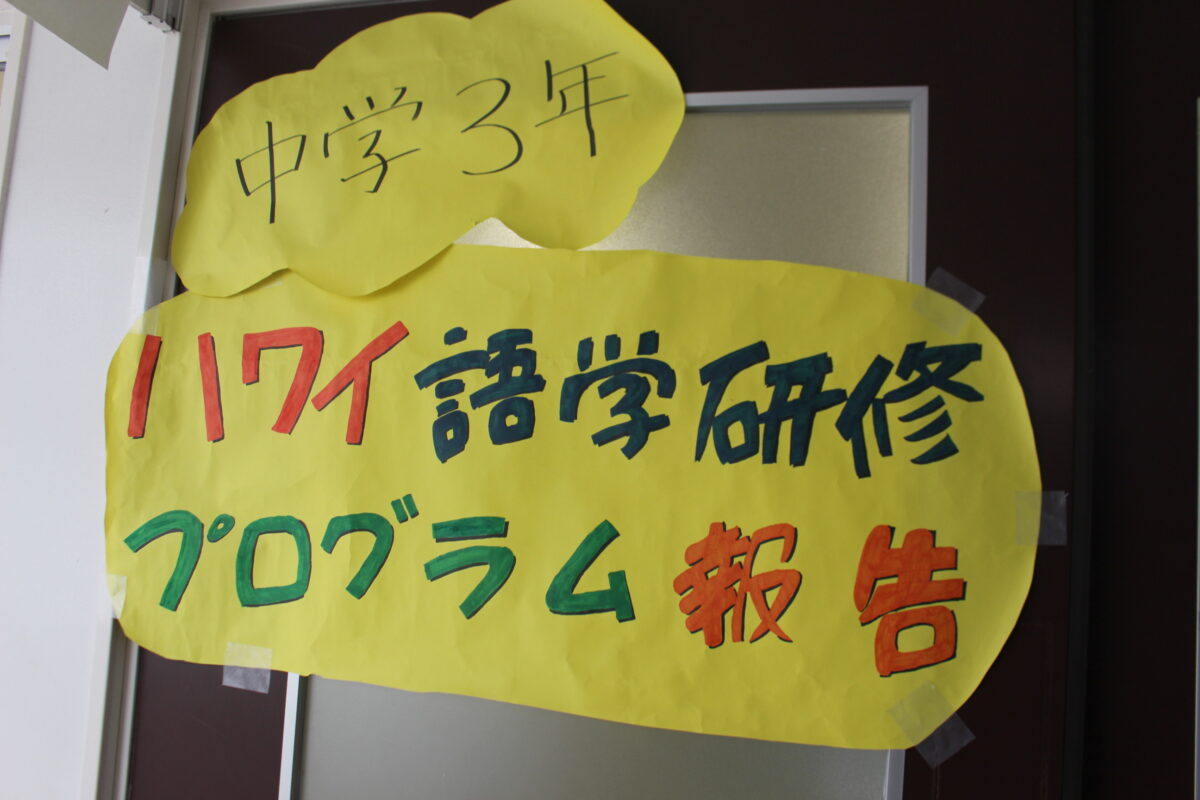 中学3年
ハワイ語学研修
プログラム報告